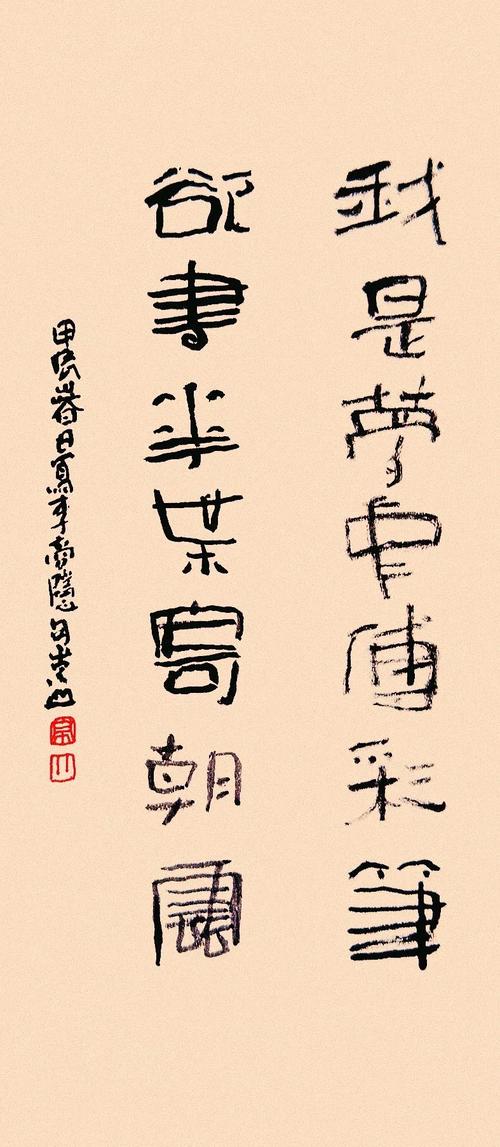 我是夢中傳彩筆
欲書華葉寄朝雲
甲辰春日寫李商隱句